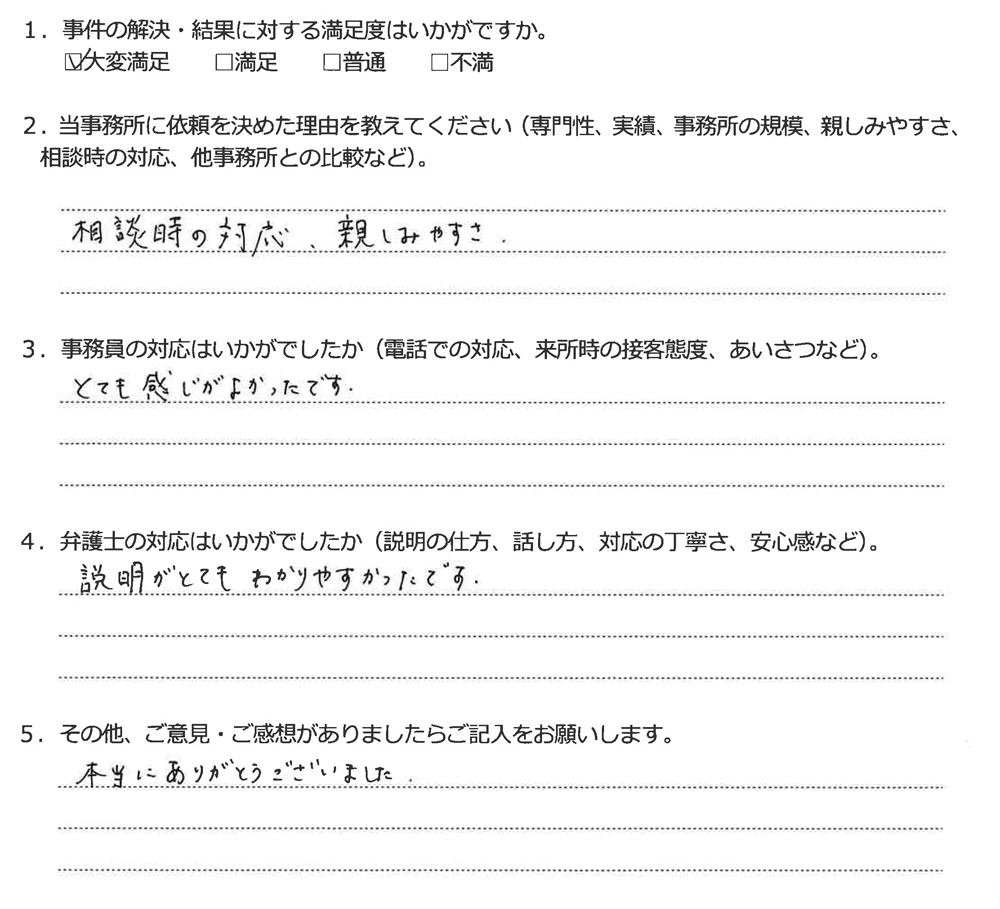 1. 事件の解決・結果に対する満足度はいかがですか。
☑大変満足 □満足 □普通 □不満
2. 当事務所に依頼を決めた理由を教えてください（専門性、実績、事務所の規模、親しみやすさ、
相談時の対応、他事務所との比較など）。
相談時の対応、親しみやすさ.
3. 事務員の対応はいかがでしたか（電話での対応、来所時の接客態度、あいさつなど）。
とても感じがよかったです.
4. 弁護士の対応はいかがでしたか（説明の仕方、話し方、対応の丁寧さ、安心感など）。
説明がとてもわかりやすかったです.
5. その他、ご意見・ご感想がありましたらご記入をお願いします。
本当にありがとうございました.